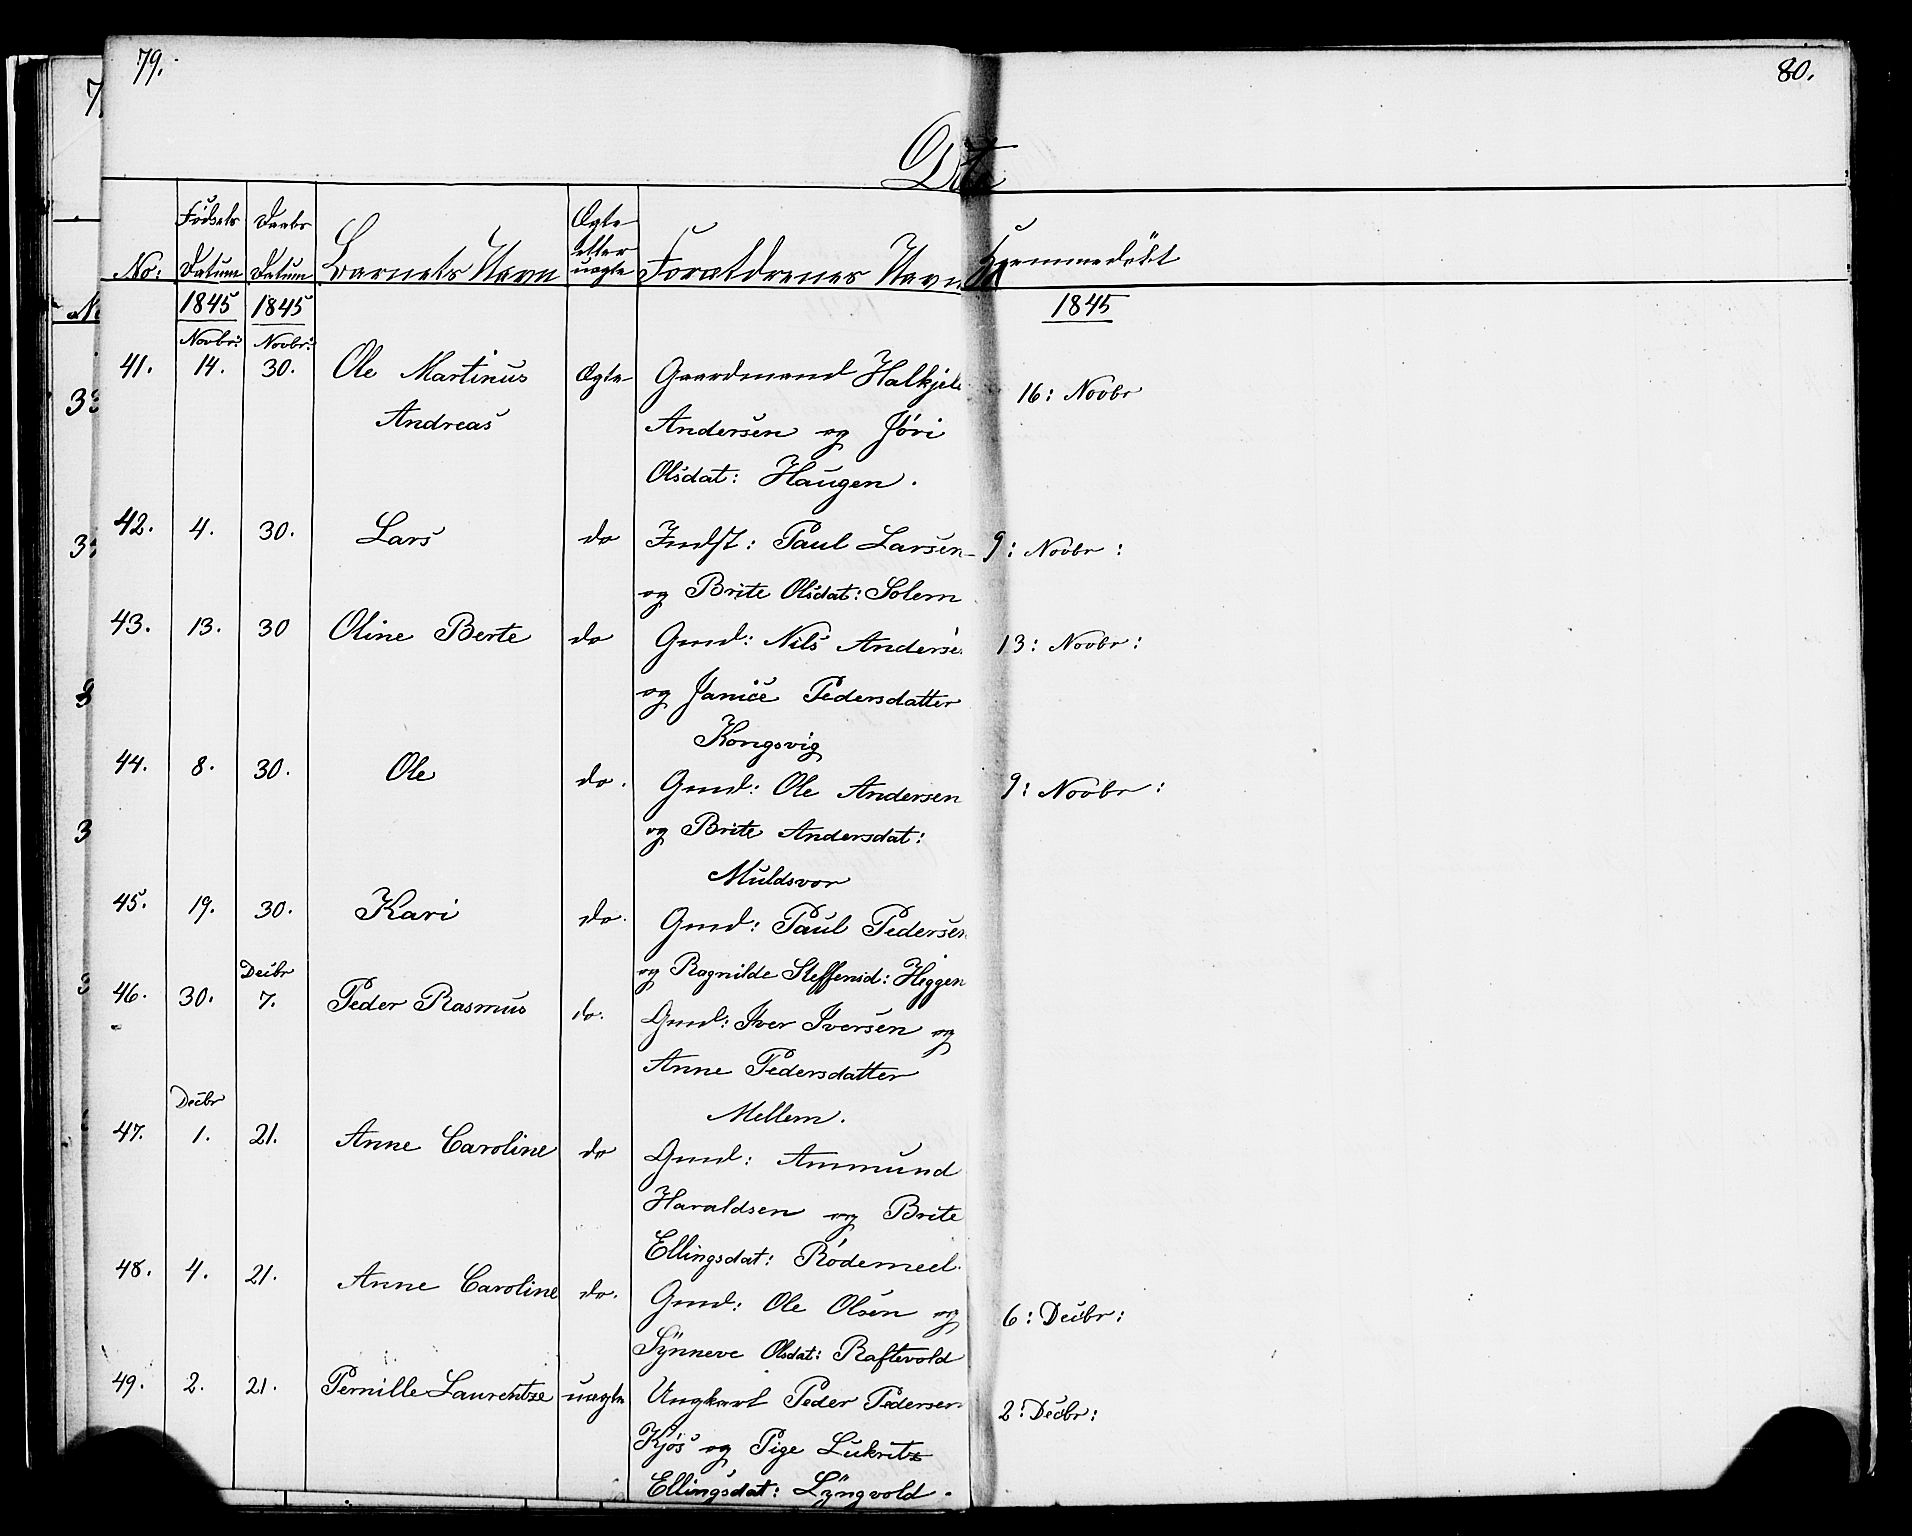 79.
80.
No: Fødsels Datum Daabs Datum Barnets Navn Ægte eller uægte Forældrenes Navn Hjemmedøbt
1845 1845 1845
Novbr: Novbr:
41. 14. 30. Ole Martinus Ægte Gaardmand Halkjel 16: Novbr
Andreas Andersen og Jøri
Olsdat: Haugen.
42. 4. 30. Lars do Indst: Paul Larsen 9: Novbr:
og Brite Olsdat: Solem
43. 13. 30 Oline Berte do Gmd: Nils Anderse 13: Novbr:
og Janice Pedersdatter
Kongsvig
44. 8. 30. Ole do. Gmd: Ole Andersen 9: Novbr:
og Brite Andersdat:
Muldsvor
45. 19. 30. Kari do. Gmd: Paul Pedersen
og Ragnilde Steffensd: Heggen
Decbr
46. 30. 7. Peder Rasmus do. Gmd: Iver Iversen og
Anne Pedersdatter
Decbr
Mellem.
47. 1. 21. Anne Caroline do Gmd: Ammund
Haraldsen og Brite
Ellingsdat: Rödemeel.
48. 4. 21. Anne Caroline do. Gmd: Ole Olsen og 6: Decbr:
Synneve Olsdat: Raftevold
49. 2. 21. Pernille Laurentze uægte Ungkarl Peder Pedersen 2: Decbr:
Kjøs og Pige Lukritz
Ellingsdat: Lyngvold.